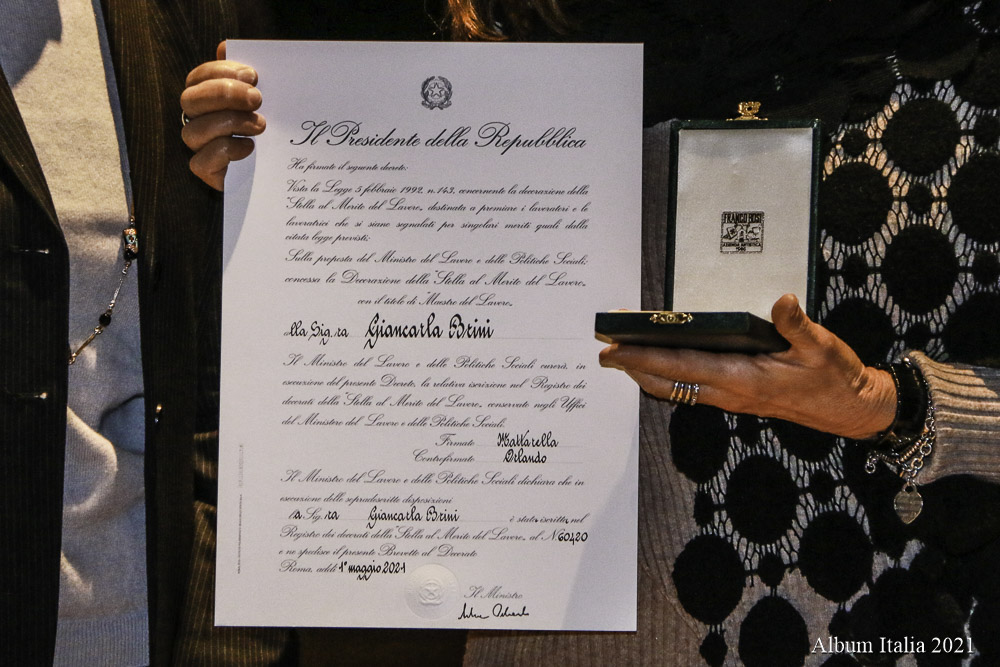 Il Presidente della Repubblica
Ha firmato il seguente decreto:
Vista la Legge 5 febbraio 1992, n. 143, concernente la decorazione della
"Stella al Merito del Lavoro", destinata a premiare i lavoratori e le
lavoratrici che si siano segnalati per singolari meriti quali dalla
citata legge previsti;
Sulla proposta del Ministro del Lavoro e delle Politiche Sociali;
concessa la Decorazione della "Stella al Merito del Lavoro",
con il titolo di "Maestro del Lavoro",
alla Sig.ra Giancarla Brini
Il Ministro del Lavoro e delle Politiche Sociali curerà, in
esecuzione del presente Decreto, la relativa iscrizione nel Registro dei
decorati della "Stella al Merito del Lavoro", conservato negli Uffici
del Ministero del Lavoro e delle Politiche Sociali.
Firmato Mattarella
Controfirmato Orlando
Il Ministro del Lavoro e delle Politiche Sociali dichiara che in
esecuzione delle sopradescritte disposizioni
la Sig.ra Giancarla Brini è stata iscritta nel
Registro dei decorati della "Stella al Merito del Lavoro", al N. 60420
e ne spedisce il presente Brevetto al Decorato
Roma, addì 1° maggio 2021
Il Ministro
FRANCO BOSI
Album Italia 2021